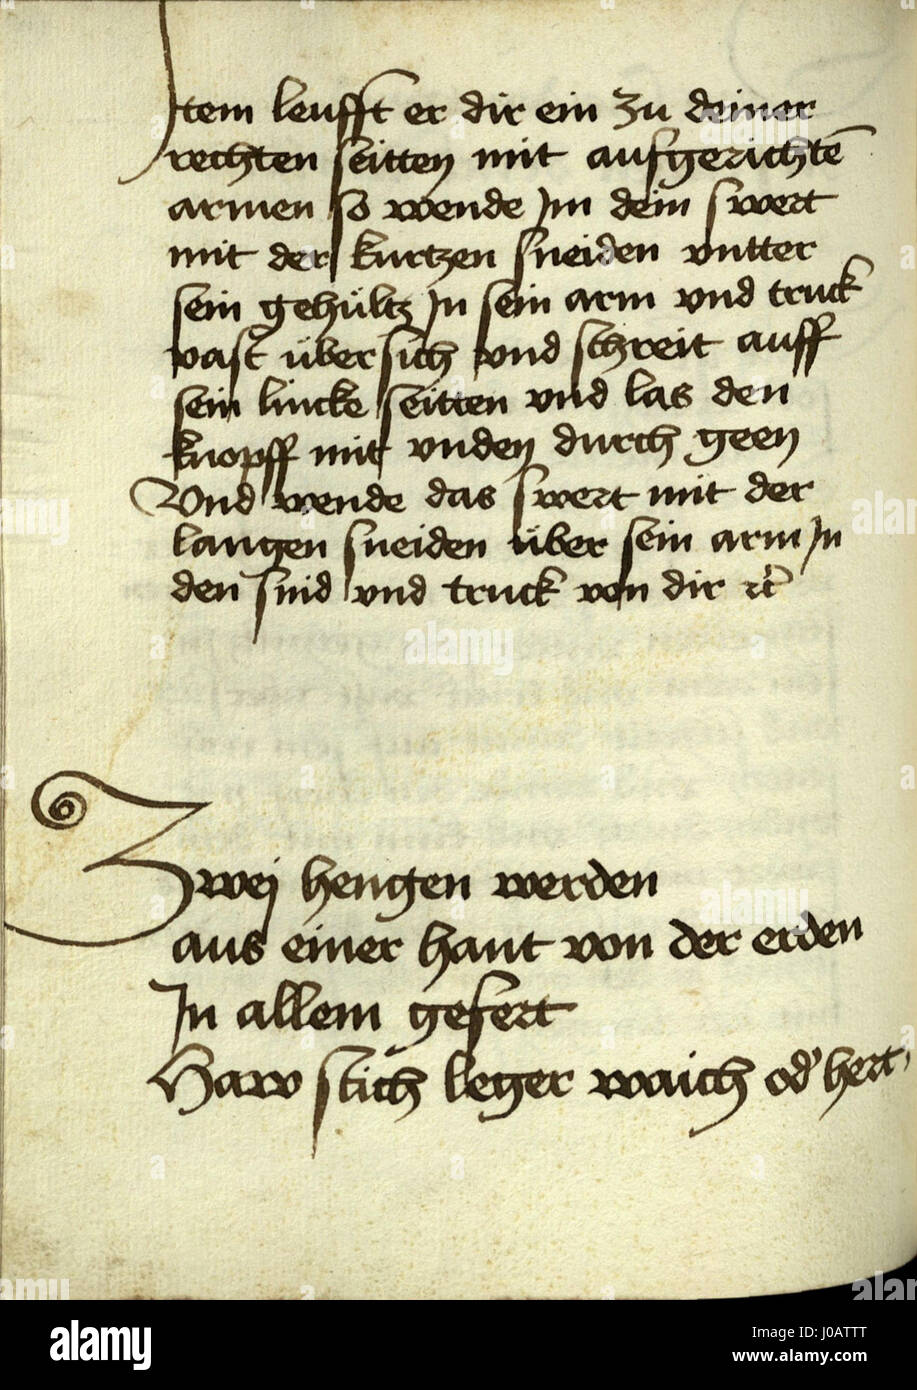 Item leufft er dir ein zu deiner
rechten seitten mit aufgerichtē
armen so wende Im dein swert
mit der kurtzen sneiden vntter
sein gehültz In sein arm vnd truck
vast über sich vnd schreit auff
sein lincke seitten vnd las den
knopff mit vnden durch geen
Vnd wende das swert mit der
langen sneiden über sein arm In
den snid vnd truck von dir ꝛc̄
Zwej hengen werden
aus einer hant von der erden
In allem gefert
Haw stich leger waich od' hert
alamy
Image ID: J0ATTT
www.alamy.com